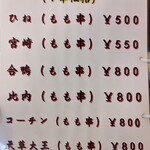 ひね (もも串) ¥500
宮崎 (もも串) ¥550
合鴨 (もも串) ¥800
比内 (もも串) ¥800
コーチン (もも串) ¥800
天草大王 (もも串) ¥800